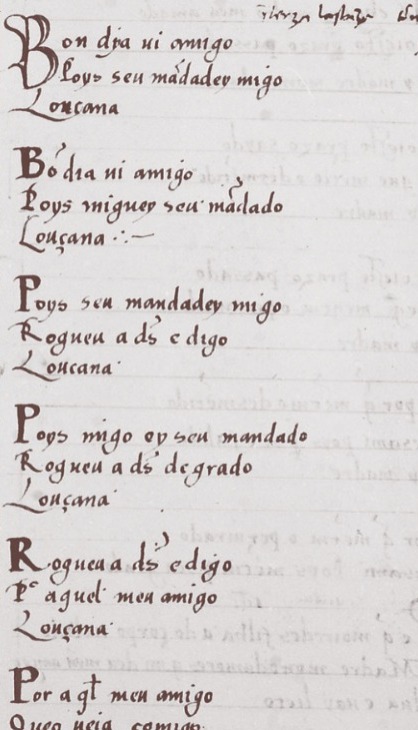 Bon dja ui amigo
Poys seu mãdadey migo
Louçana
Bõ dia ui amigo
Poys miguey seu mãdado
Louçana ∴—
Poys seu mandadey migo
Rogueu a ds̃ e digo
Loucana
Poys migo ey seu mandado
Rogueu a ds̃ de grado
Louçana
Rogueu a ds̃ e digo
Pᶜ aquel meu amigo
Louçana
Por a ql̃ meu amigo
Queo ueia comigo